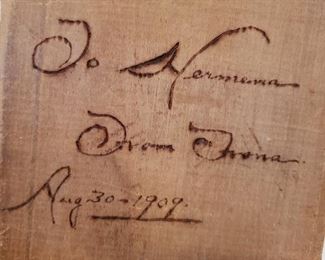 To Nermenia
From Frona
Aug 30-1909.